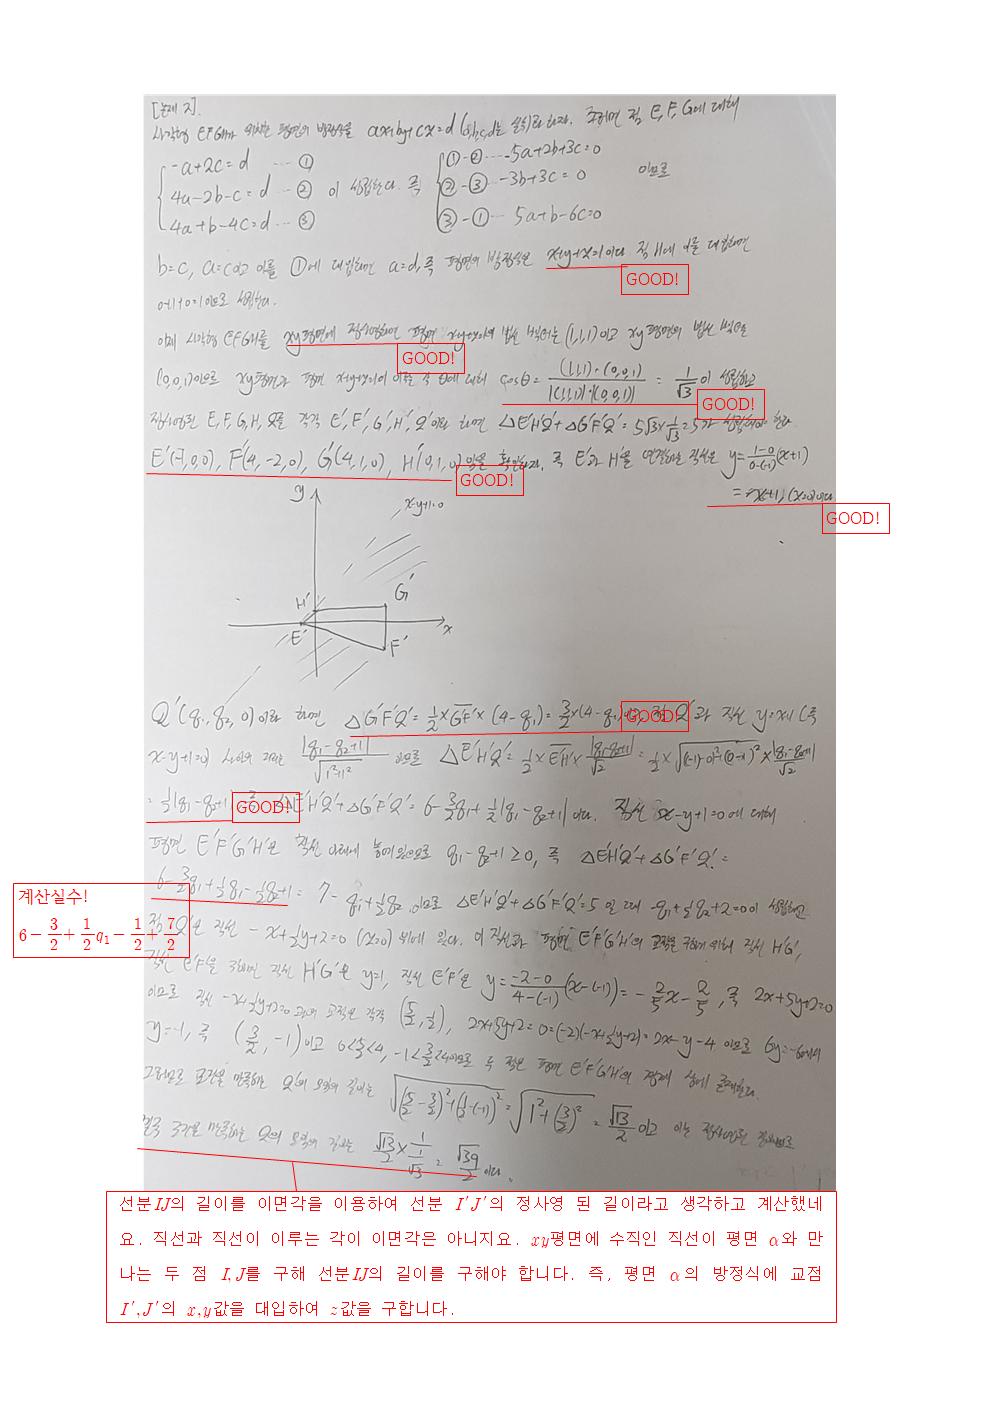 [논제 2].
사각형 EFGH가 위치한 평면의 방정식을 ax+by+cz=d (a,b,c,d는 실수)라 하자. 그러면 점 E, F, G에 대해
-a+2c=d ---- ①
4a-2b-c=d -- ②
4a+b-4c=d -- ③
이 성립한다. 즉
①-② ---- -5a+2b+3c=0
②-③ --- -3b+3c=0
③-① --- 5a+b-6c=0
이므로
b=c, a=c이고 이를 ①에 대입하면 a=d, 즉 평면의 방정식은 x+y+z=1이다. 점 H에 이를 대입하면
GOOD!
0+1+0=1이므로 성립한다.
이제 사각형 EFGH를 xy평면에 정사영하면 평면 x+y+z=1의 법선 벡터는 (1,1,1)이고 xy평면의 법선 벡터는
GOOD!
(0,0,1)이므로 xy평면과 평면 x+y+z=1이 이루는 각 θ에 대해 cosθ = (1,1,1)·(0,0,1) / |(1,1,1)|·|(0,0,1)| = 1/√3이 성립하고
GOOD!
정사영된 E, F, G, H, Q를 각각 E', F', G', H', Q'이라 하면 △E'H'Q'+△G'F'Q' = 5√3×1/√3=5가 성립해야 한다.
E'(-1,0,0), F'(4,-2,0), G'(4,1,0), H'(0,1,0)임을 확인하자. 즉 E'과 H'을 연결하는 직선은 y=1-0/0-(-1)(x+1)
GOOD!
= x+1, (z=0)이다.
GOOD!
y
x-y+1=0
G'
H'
E'
x
F'
Q'(q₁, q₂, 0)이라 하면 △G'F'Q' = 1/2×G'F'×(4-q₁) = 3/2×(4-q₁)이고, 점 Q'과 직선 y=x+1 (즉
GOOD!
x-y+1=0) 사이의 거리는 |q₁-q₂+1|/√1²+1² 이므로 △E'H'Q' = 1/2×E'H'×|q₁-q₂+1|/√2 = 1/2×√((-1)-0)²+(0-1)²×|q₁-q₂+1|/√2
= 1/2|q₁-q₂+1| △E'H'Q'+△G'F'Q' = 6-3/2q₁+1/2|q₁-q₂+1|이다. 직선 x-y+1=0에 대해
GOOD!
평면 E'F'G'H'은 직선 아래에 놓여있으므로 q₁-q₂+1≥0, 즉 △E'H'Q'+△G'F'Q' =
6-3/2q₁+1/2q₁-1/2q₂+1 = 7-q₁+1/2q₂ 이므로 △E'H'Q'+△G'F'Q'=5일 때 -q₁+1/2q₂+2=0이 성립하고
계산실수!
6 - 3/2 + 1/2 q₁ - 1/2 + 7/2
점 Q'은 직선 -x+1/2y+2=0 (z=0) 위에 있다. 이 직선과 평면 E'F'G'H'의 교점을 구하기 위해 직선 H'G',
직선 E'F'을 구하면 직선 H'G'은 y=1, 직선 E'F'은 y=-2-0/4-(-1)(x-(-1)) = -2/5x-2/5, 즉 2x+5y+2=0
이므로 직선 -x+1/2y+2=0과의 교점은 각각 (5/2, 1/2), 2x+5y+2=0=(-2)(-x+1/2y+2)=2x-y-4 이므로 6y=-6에서
y=-1, 즉 (3/2, -1)이고 0<5/2<4, -1<3/2<4이므로 두 점은 평면 E'F'G'H'의 경계 상에 존재한다.
그러므로 조건을 만족하는 Q'의 자취의 길이는 √(5/2-3/2)²+(1/2-(-1))² = √1²+(3/2)² = √13/2 이고 이는 정사영된 길이므로
결국 조건을 만족하는 Q의 자취의 길이는 √13/2×1/1/√3 = √39/2 이다.
선분 IJ의 길이를 이면각을 이용하여 선분 I'J'의 정사영 된 길이라고 생각하고 계산했네
요. 직선과 직선이 이루는 각이 이면각은 아니지요. xy평면에 수직인 직선이 평면 α와 만
나는 두 점 I, J를 구해 선분IJ의 길이를 구해야 합니다. 즉, 평면 α의 방정식에 교점
I', J'의 x, y값을 대입하여 z값을 구합니다.